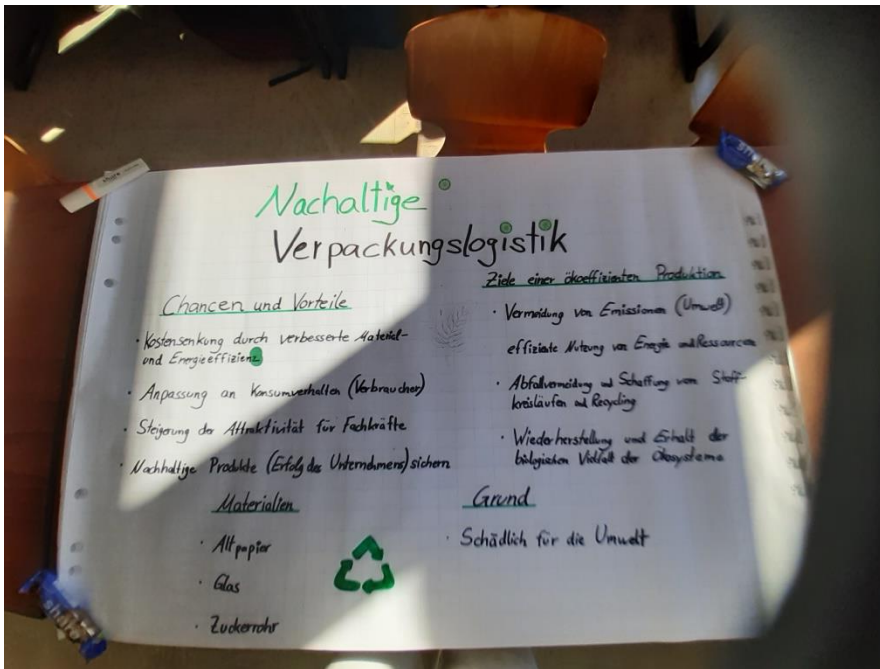 Nachaltige
Verpackungslogistik
Chancen und Vorteile
· Kostensenkung durch verbesserte Material-
und Energieeffizienz
· Anpassung an Konsumverhalten (Verbraucher)
· Steigerung der Attraktivität für Fachkräfte
· Nachhaltige Produkte (Erfolg des Unternehmens) sichern
Materialien
· Altpapier
· Glas
· Zuckerrohr
Ziele einer ökoeffizienten Produktion
· Vermeidung von Emissionen (Umwelt)
effiziente Nutzung von Energie und Ressourcen
· Abfallvermeidung und Schaffung von Stoff-
kreisläufen und Recycling
· Wiederherstellung und Erhalt der
biologischen Vielfalt der Ökosysteme
Grund
· Schädlich für die Umwelt
share